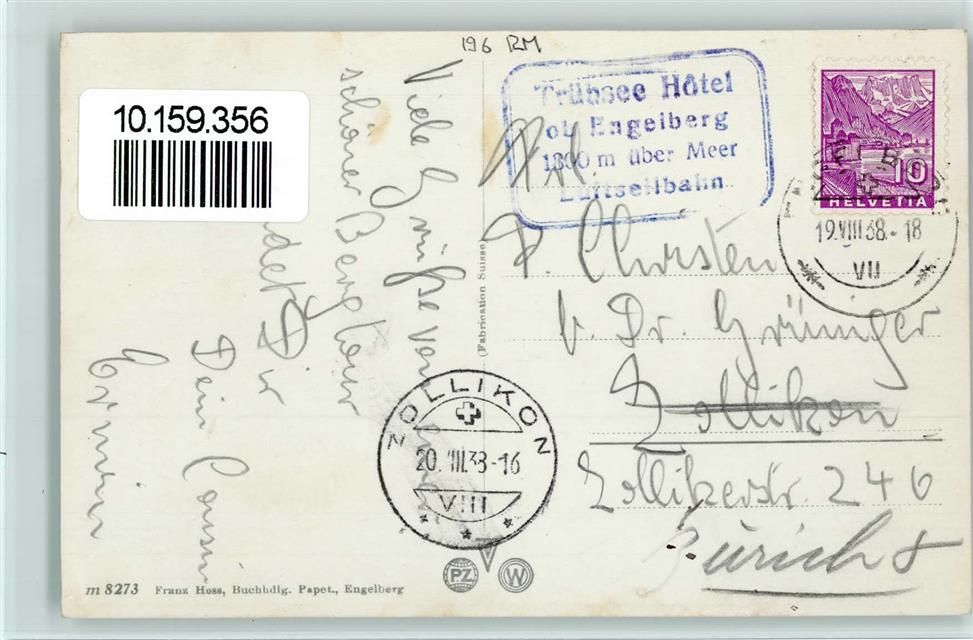 196 RM
10.159.356
Trübsee Hôtel
ob Engelberg
1800 m über Meer
Luftseilbahn
10
HELVETIA
19.VIII.38.-18
VII
Viele Grüße von
schöner Bergtour
sendet Dir
Dein Cousin
Erwin
(Fabrication Suisse)
P. Christen
b. Dr. Grüniger
Zollikon
Zollikerstr. 246
Zürich 8
ZOLLIKON
20.VIII.38-16
VIII
PZ
W
m 8273 Franz Hess, Buchhdlg. Papet., Engelberg